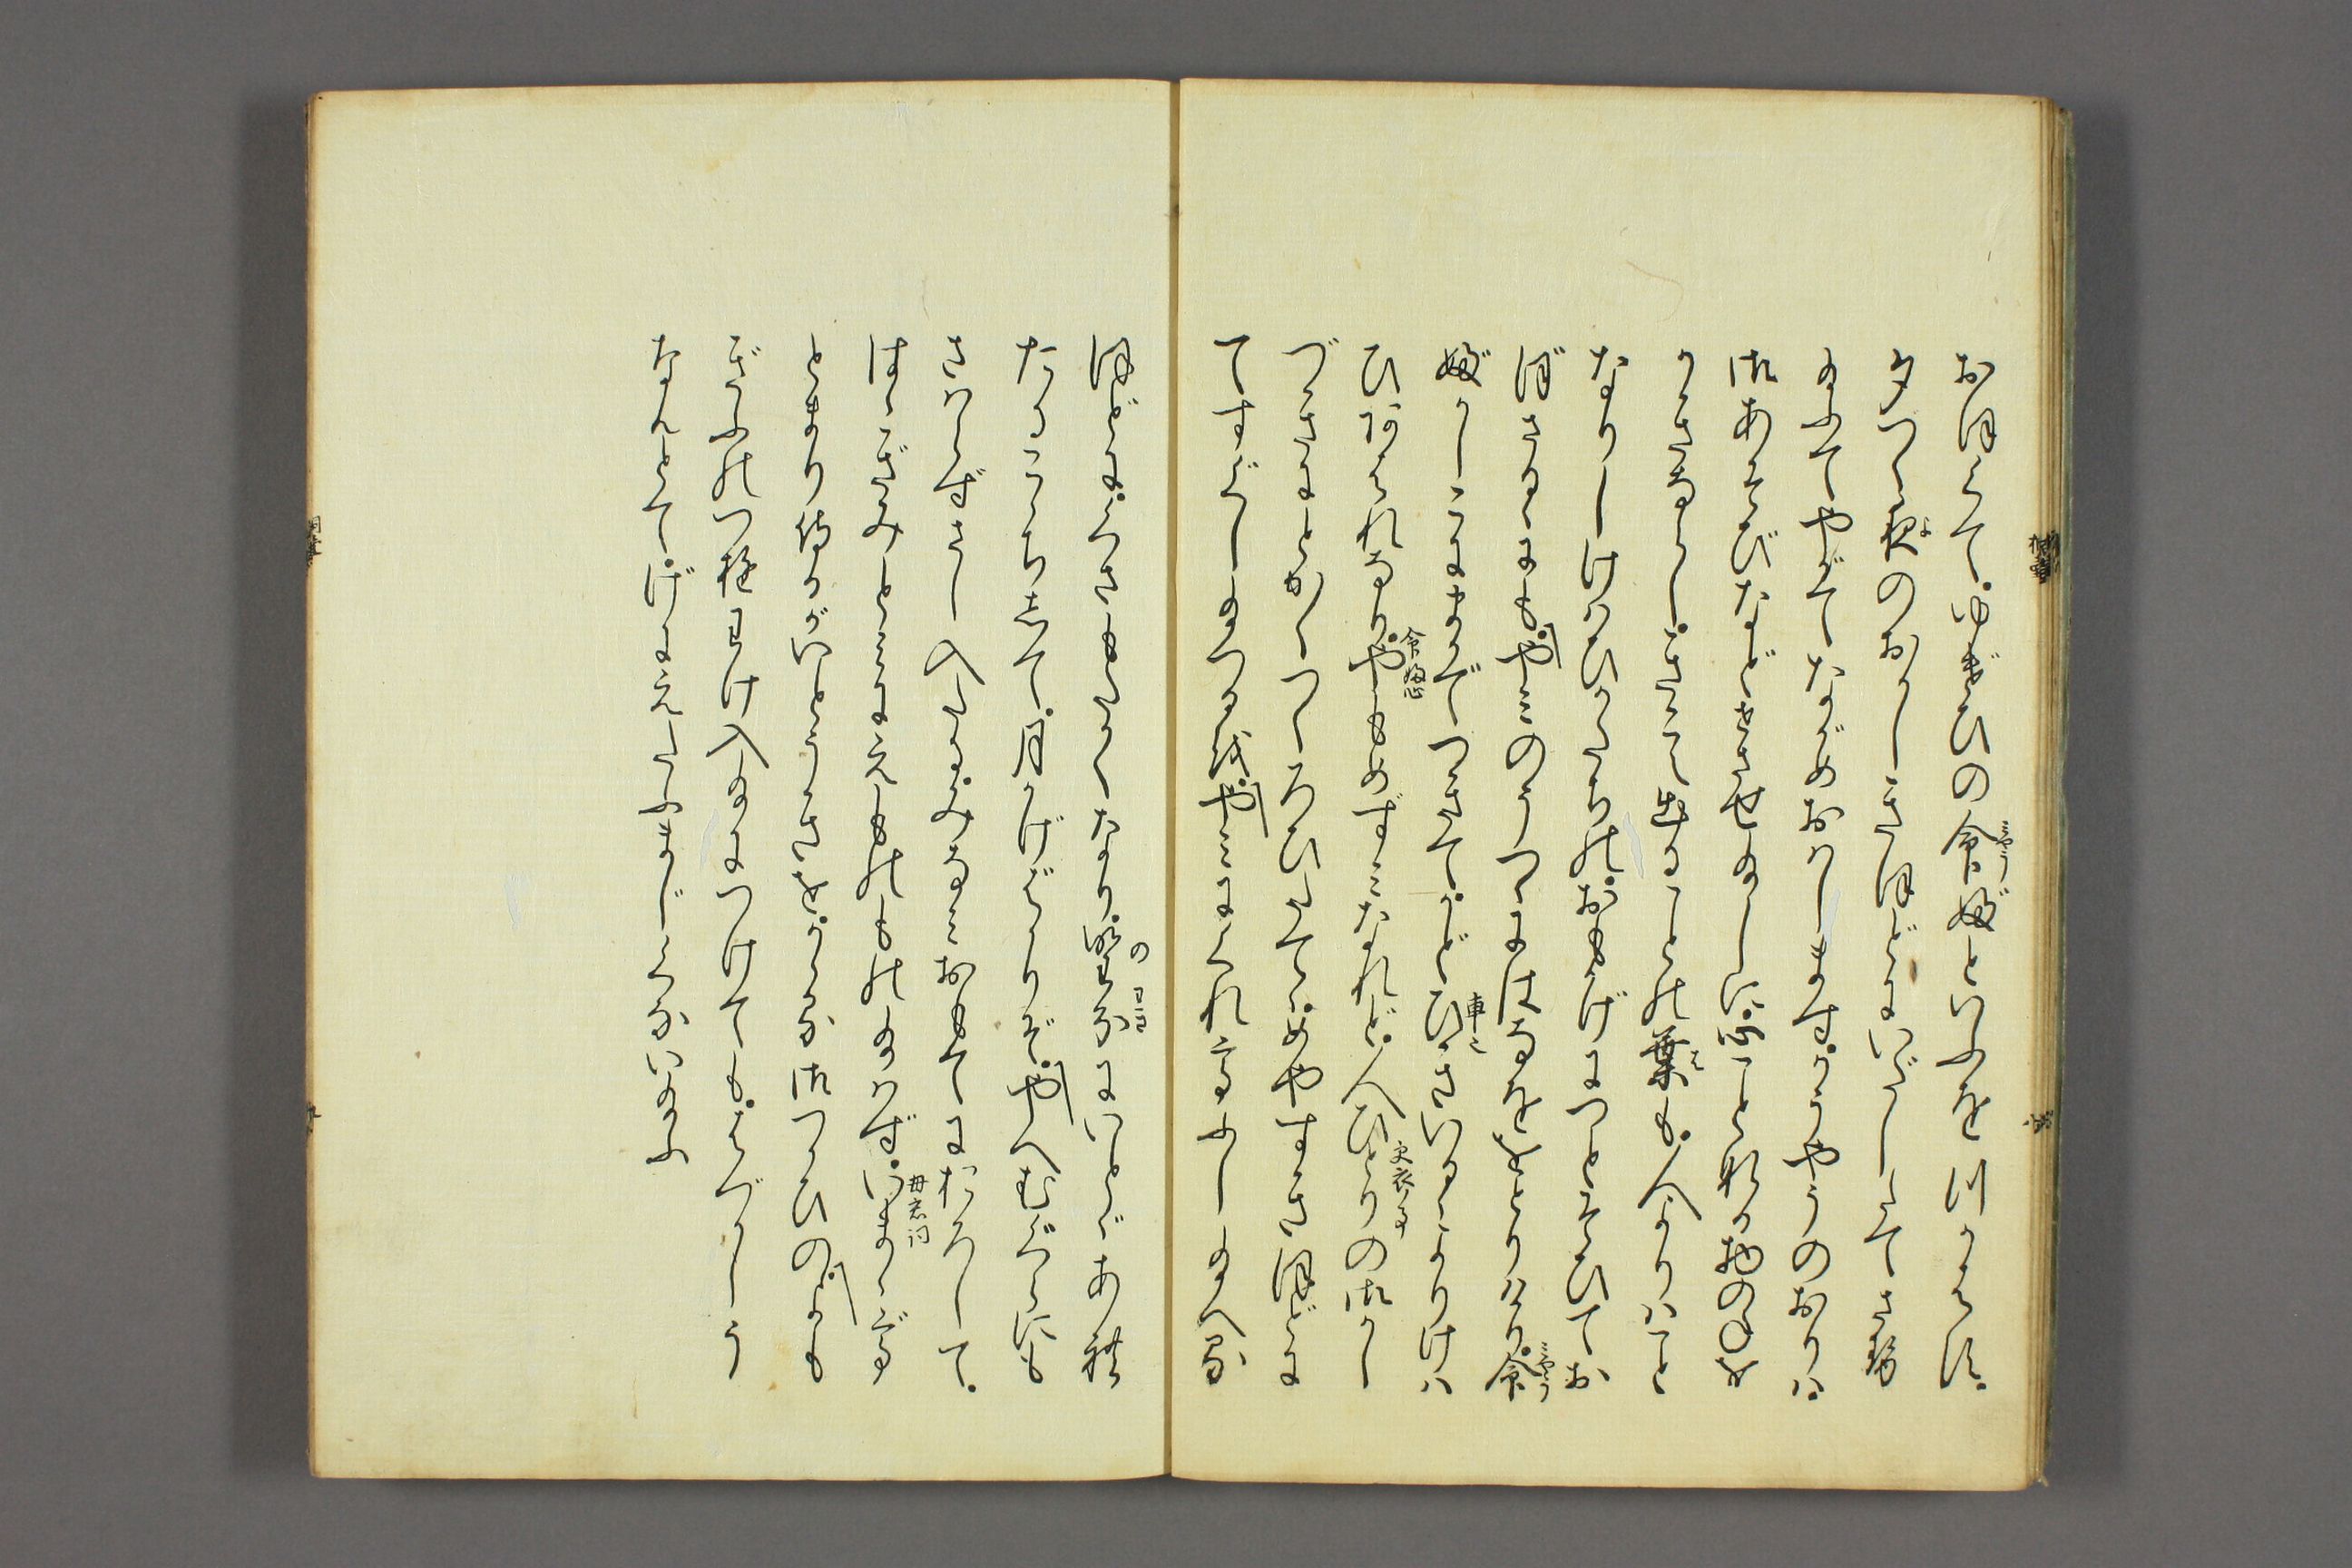 おぼして。ゆぎひの命婦といふをつかはす。
夕づく夜のおかしきほどにいだしたてさせ
給ふてやがてながめおはします。かうやうのおりは
御あそびなどせさせ給ひしに。心ことなる物のねを
かきならし。はかなく聞え出ることの葉も。人よりはこと
なりしけはひかたちの。おもかげにつとそひてお
ぼさるゝにも。やみのうつゝにはなををとりけり。命
婦かしこにまかでつきて。かどひきいるゝよりけは
ひあはれなり。やもめずみなれど。人ひとりの御かし
づきにとかくつくろひたてゝ。めやすきほどに
てすぐし給へるを。やみにくれてふし給へる
ほどに。くさもたかくなり。野わきにいとゞあれ
たるこゝちして。月かげばかりぞ。やへむぐらにも
さはらずさし入たる。みなみおもてにおろして。
はゝぎみもとみにえものものたまはず。いままで
とまり侍るがいとうきを。かゝる御つかひの。よも
ぎふの露わけ入給ふにつけても。はづかしう
なんとて。げにえたふまじくない給ふ
命婦心
車を
更衣の事
母君詞